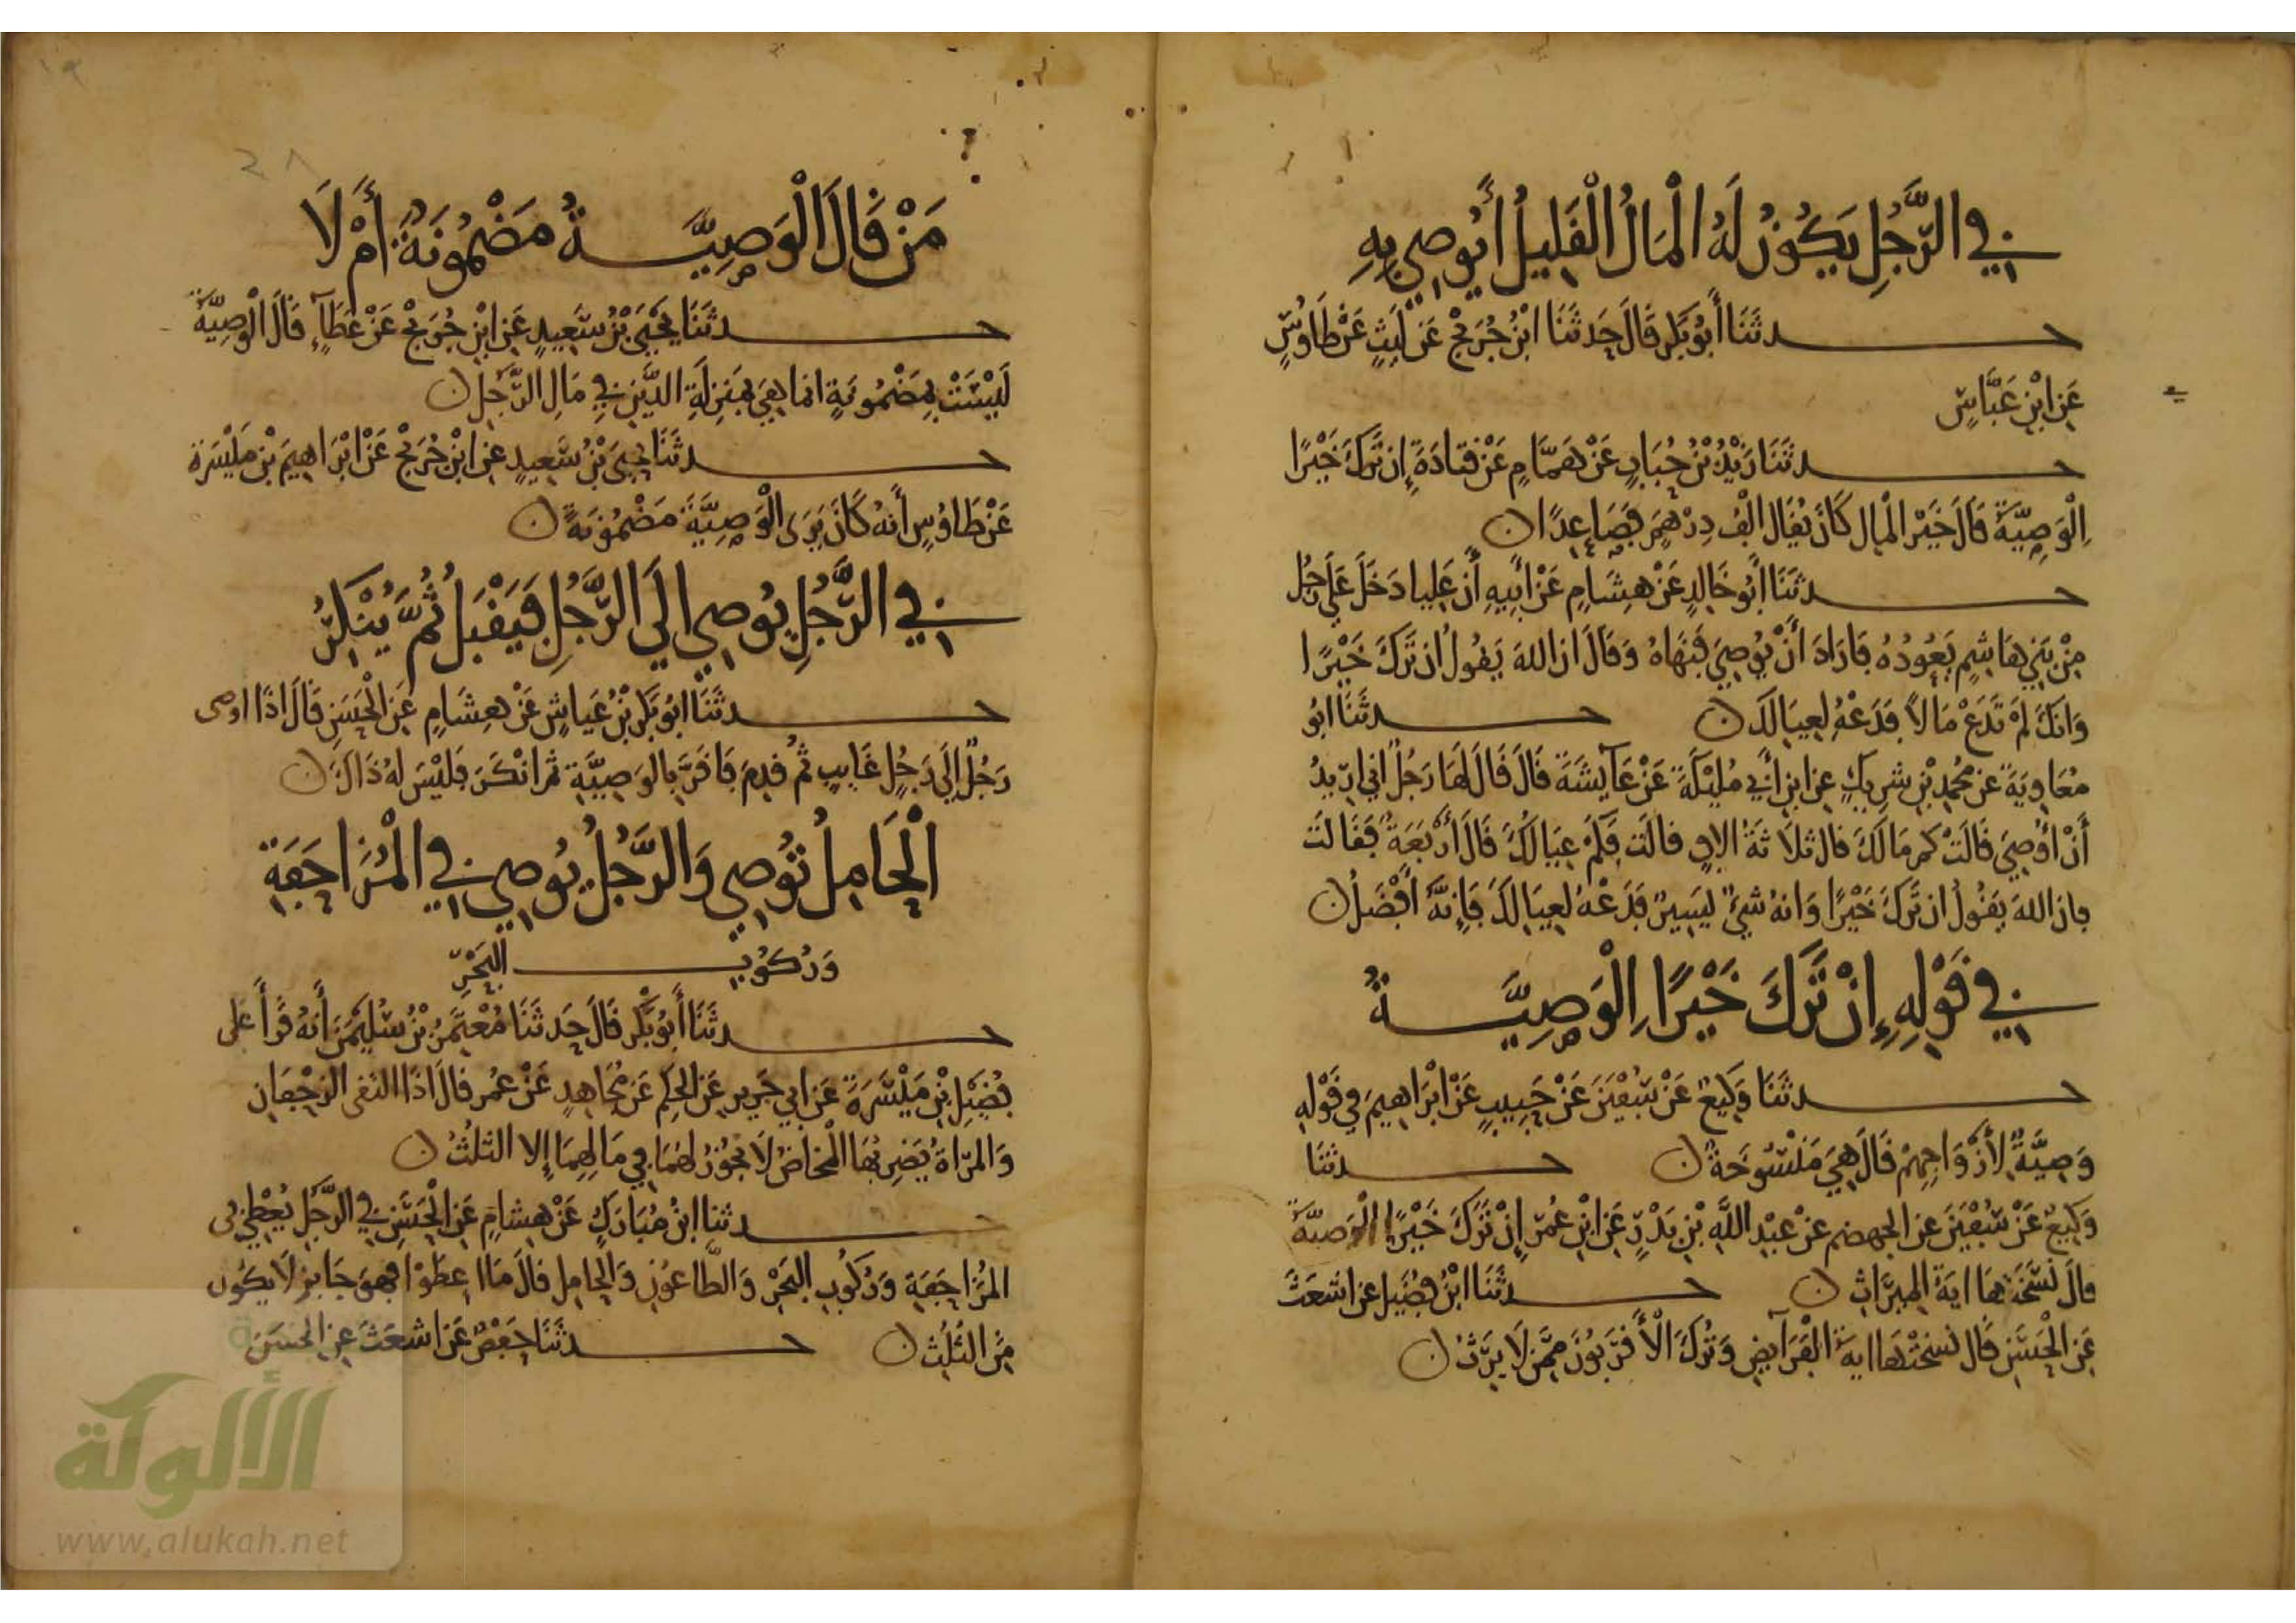 في الرَّجُلِ يَكُونُ لَهُ الْمَالُ الْقَلِيلُ أَيُوصِي بِهِ
حدثَنَا أَبُو بَكْرٍ قَالَ حَدثَنَا ابْنُ جُرَيْجٍ عَن لَيْثٍ عَنْ طَاوُسٍ
عَنِ ابْنِ عَبَّاسٍ
حدثَنَا زَيْدُ بْنُ حُبَابٍ عَنْ هَمَّامٍ عَنْ قَتادَةَ إِن تَرَكَ خَيْرًا
اِلْوَصِيَّةَ قَالَ خَيْر الْمال كَانَ يُقَال الْف دِرْهَمٍ فَصَاعِدًا ن
حدثَنَا أَبُو خَالِدٍ عَنْ هِشَامٍ عَنْ أَبِيهِ أَن عَلِيا دَخَلَ عَلَى رَجُل
مِنْ بَنِي هَاشِمٍ يَعُودُهُ فَارَادَ أَنْ يُوصِيَ فَنَهَاهُ وَقَالَ ان اللهَ يَقُولُ ان تَرَكَ خَيْرًا
وَانكَ لَمْ تَدَعْ مَالاً فَدَعْهُ لِعِيَالكَ ن حدثَنَا ابُو
مُعَاوِيَةَ عن مُحمدِ بْنِ شرِيكٍ عن ابن أَبِي مُلَيْكَةَ عَنْ عَآيِشَةَ قَالَ قَالَ لَهَا رَجُلٌ اني ارِيدُ
أَنْ أُوصِيَ قَالَتْ كم مَالكَ قال ثلاثَةُ الاف قالَت فَكَمْ عِيَالكَ قَالَ أَرْبَعَةٌ فَقَالتَ
فان اللهَ يَقُولُ ان تَرَكَ خَيْرًا وَانهُ شيْءٌ يَسِيرٌ فَدَعْهُ لِعِيَالكَ فَإِنَّهُ افْضَلُ ن
في قَوْلِهِ إِنْ تَرَكَ خَيْرًا اِلْوَصِيَّةُ
حدثَنَا وَكِيعٌ عَنْ سُفْيَنَ عَنْ حَبِيبٍ عَنْ ابْرَاهِيمَ في قَوْلِهِ
وَصِيَّةً لأَزْوَاجِهِمْ قَالَ هِيَ مَنْسُوخَةٌ ن حدثنَا
وَكِيعٌ عَنْ سُفْيَنَ عن الجهضمِ عنْ عبْدِ اللَّهِ بْنِ بَدْرٍ عَنِ ابْنِ عُمَرَ إِنْ تَرَكَ خَيْرًا الْوَصيَّة
قالَ نَسَخَتْهَا ايَةُ المِيرَاثِ ن حدثَنَا ابْنُ فُضَيلٍ عن اشعَثَ
عَنِ الْحَسَنِ قَال نَسَخَتْهَا ايةُ الْفَرَآيضِ وَتُركَ الْأَقْرَبُونَ مِمَّن لَا يَرِثُ ن
مَنْ قَالَ الْوَصِيَّةُ مَضْمُونَةٌ أَمْ لَا
حدثَنَا يَحْيَى بْنُ سَعِيدٍ عَنِ ابْنِ جُرَيْجٍ عَنْ عَطَآءٍ قَالَ الْوَصِيَّةُ
لَيْسَتْ بِمَضْمُونَةٍ انمَا هِيَ بِمَنزِلَةِ الدَّيْنِ فِي مَالِ الرَّجُلِ ن
حدثَنَا يحيى بْنُ سَعِيدٍ عنِ ابْنِ جُرَيْجٍ عَنْ ابْرَاهِيمَ بْنِ مَيْسَرَة
عَنْ طَاوُسٍ أَنهُ كَانَ يَرَى الْوَصِيَّةَ مَضْمُونَةً ن
في الرَّجُلِ يُوصِي الَى الرَّجُلِ فَيَقْبَلُ ثُمَّ يُنْكِرُ
حدثَنَا ابُو بَكْرِ بْنُ عَياشٍ عَنْ هِشَامٍ عَنِ الْحَسَنِ قَالَ اذَا اوصى
رَجُلٌ الَى رَجُلٍ غَايِبٍ ثُم قَدِمَ فَاقَرَّ بِالوَصِيَّةِ ثم انْكَرَ فَلَيْسَ لهُ ذَاكَ ن
الْحَامِلُ تُوصِي وَالرَّجُلُ يُوصِي في الْمُزَاحَفَةِ
وَرُكُوبِ الْبَحْرِ
حدثَنَا أَبُو بَكْرٍ قَالَ حَدثَنَا مُعْتَمَرُ بْنُ سُلَيْمَنَ أَنهُ قَرَأَ على
فُضَيْلِ بْنِ مَيْسَرَةَ عَن ابِي حَرِيزٍ عَنِ الحكم عَن مُجَاهِدٍ عَنْ عُمر قَالَ اذَا التقى الزحْفَانِ
وَالمرْاةُ يَضْرِبُهَا الْمَخاضُ لَا يَجُوزُ لَهُمَا فِي مَالِهِمَا إلا الثلُثُ ن
حدثنا ابنُ مُبَارَكٍ عَنْ هِشامٍ عَنِ الْحَسَنِ في الرَّجُلِ يُعْطِي فى
المُزَاحَفَةِ وَرُكُوبِ الْبَحْرِ وَالطَّاعُونِ وَالحامِلِ قَالَ مَا اعطَوْا فهوَ جَايز لَا يكُون
مِنَ الثلُثِ ن حدثَنَا حَفْصٌ عَن اشعَثَ عنِ الحسَنِ
الألوكة
www.alukah.net